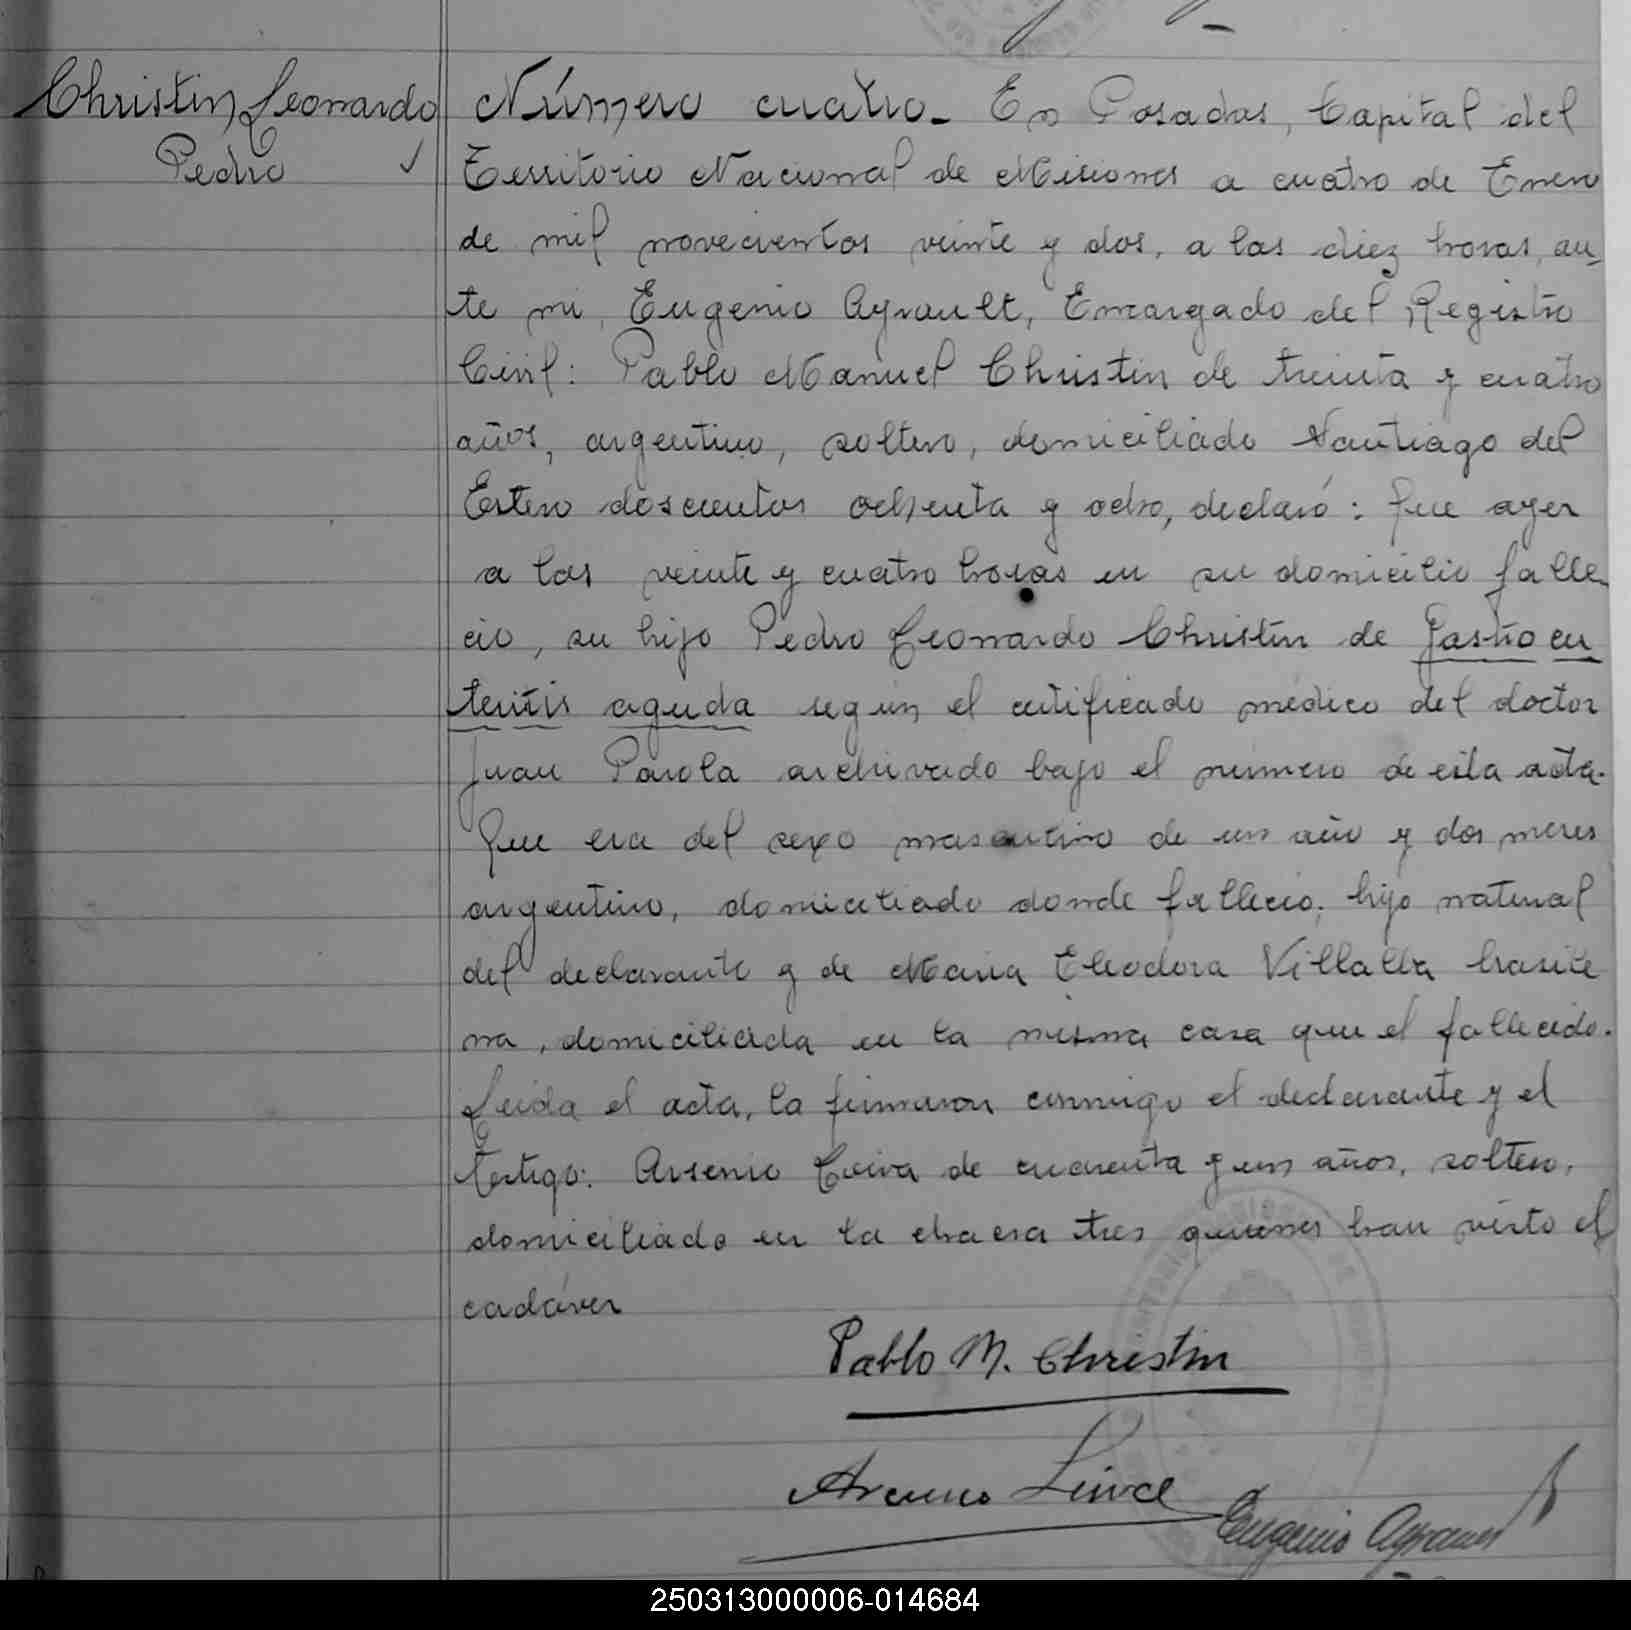 Christin Leonardo
Pedro
Número cuatro. En Posadas, Capital del
Territorio Nacional de Misiones a cuatro de Enero
de mil novecientos veinte y dos, a las diez horas, an
te mi, Eugenio Ayrault, Encargado del Registro
Civil: Pablo Manuel Christin de treinta y cuatro
años, argentino, soltero, domiciliado Santiago del
Estero doscientos ochenta y ocho, declaró: Que ayer
a las veinte y cuatro horas en su domicilio falle
cio, su hijo Pedro Leonardo Christin de Gastro en
teritis aguda según el certificado médico del doctor
Juan Parola archivado bajo el número de esta acta.
Que era del sexo masculino de un año y dos meses
argentino, domiciliado donde falleció; hijo natural
del declarante y de Maria Eleodora Villalba brasile
na, domiciliada en la misma casa que el fallecido.
Leida el acta, la firmaron conmigo el declarante y el
testigo: Arsenio de cuarenta y un años, soltero,
domiciliado en la chacra tres quienes han visto el
cadáver
Pablo M. Christin
Eugenio Ayrault
250313000006-014684